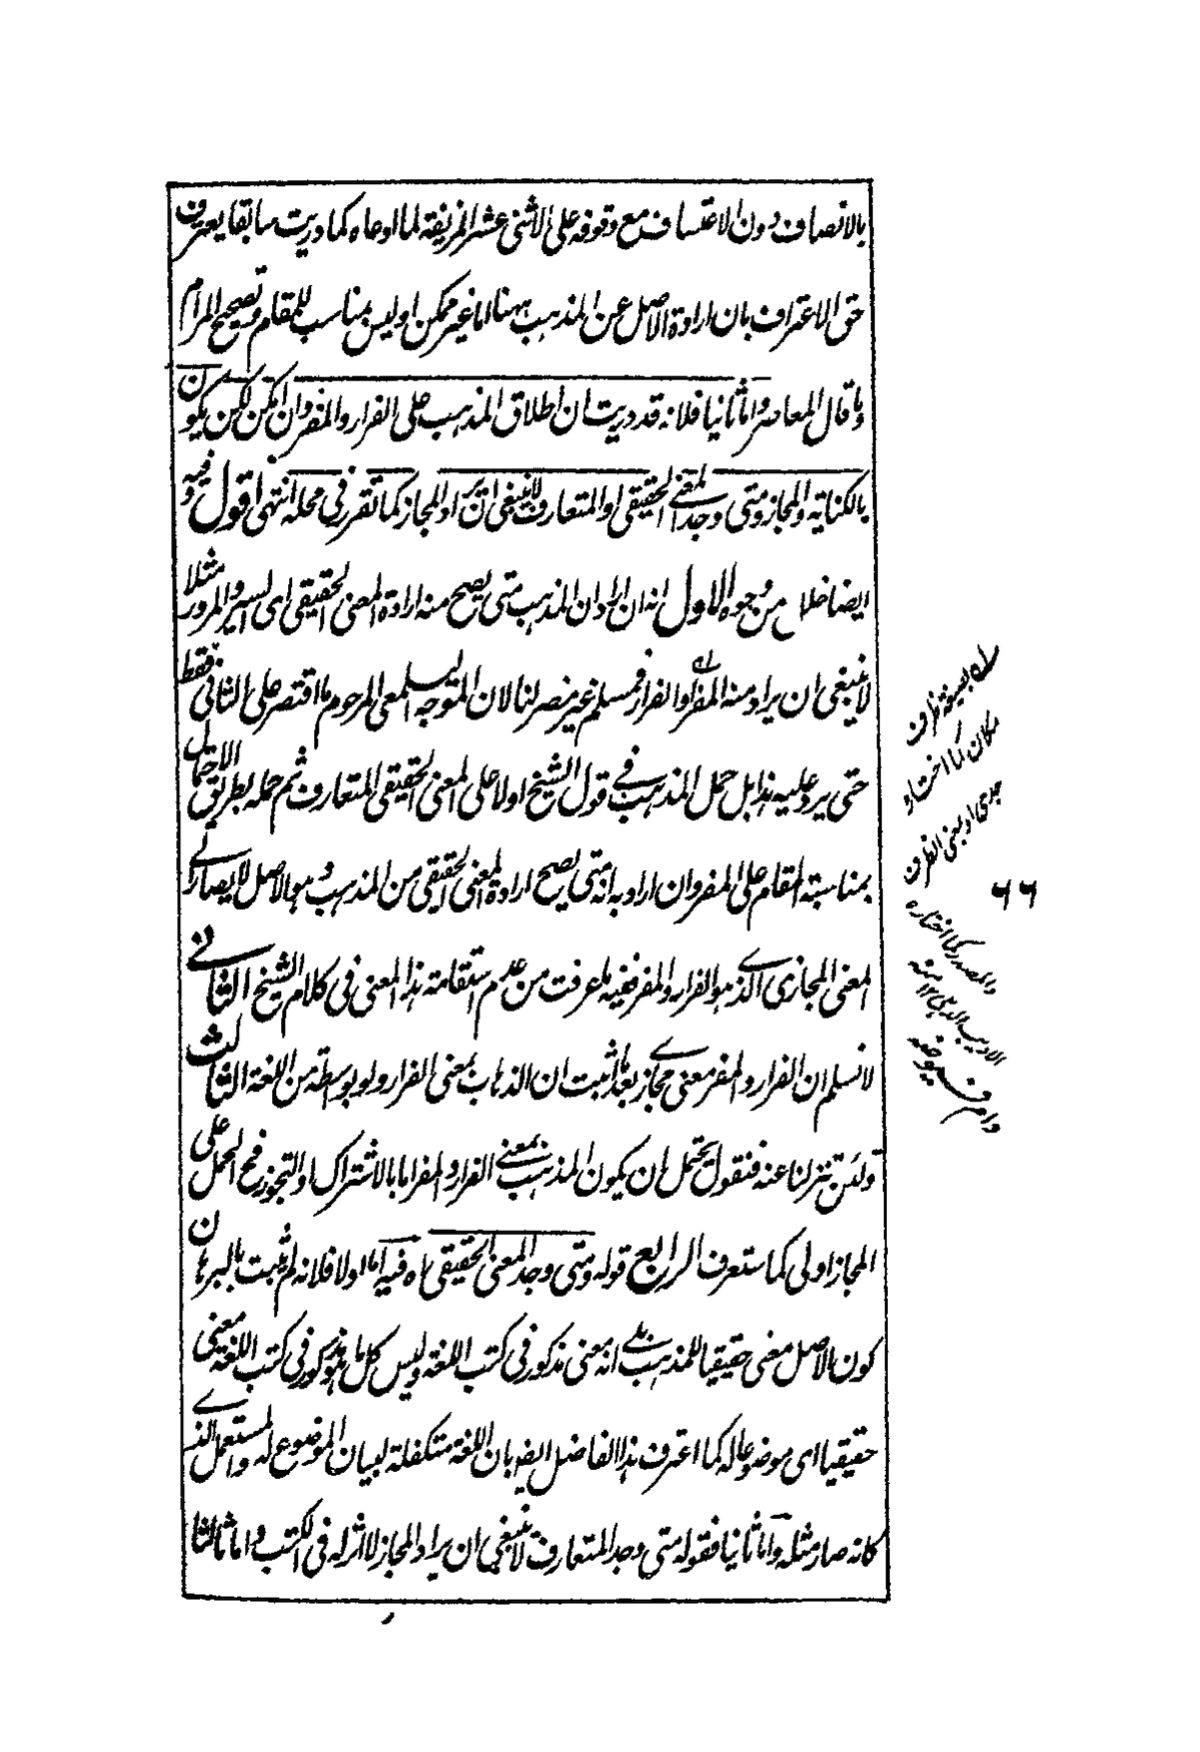 بالانصاف دون الاعتساف مع وقوفه على الاثنى عشر المزيفة لما ادعاه كما دريت سابقا يعترف
حق الاعتراف بان ارادة الاصل عن المذهب ههنا اما غير ممكن او ليس مناسب للمقام وتصحيح المرام
وما قال المعاصر واما ثانيا فلانه قد دريت ان اطلاق المذهب على الفرار والمفر وان امكن لكن يكون
بالكناية والمجاز ومتى وجد المعنى الحقيقى او المتعارف لا ينبغى ان يراد المجاز كما تقرر فى محله انتهى اقول وفيه
ايضا خلل من وجوه الاول انه ان اراد ان المذهب متى يصح منه ارادة المعنى الحقيقى اى السير والمرور مثلا
لا ينبغى ان يراد منه المفر او الفرار فمسلم غير مضر لنا لان المتوجه اليلمعى المرحوم ما اقتصر على الثانى فقط
حتى يرد عليه هذا بل حمل المذهب فى قول الشيخ اولا على المعنى الحقيقى المتعارف ثم حمله بطريق الاحتمال
بمناسبة المقام على المفر وان اراد به انه متى يصح ارادة المعنى الحقيقى من المذهب وهو الاصل لا يصار الى
المعنى المجازى الذى هو الفرار والمفر ففيه ما عرفت من عدم استقامة هذا المعنى فى كلام الشيخ الثانى
لا نسلم ان الفرار والمفر معنى مجازى بعد ما اثبت ان الذهاب بمعنى الفرار ولو بوسطة من اللغة الثالث
ولئن تنزلنا عنه فنقول يحتمل ان يكون المذهب بمعنى الفرار والمفر اما بالاشتراك او التجوز فح الحمل على
المجاز اولى كما ستعرف الرابع قوله ومتى وجد المعنى الحقيقى اه فيه اما اولا فلانه لم يثبت بالبرهان
كون الاصل معنى حقيقيا للمذهب بلى انه معنى مذكور فى كتب اللغة وليس كل ما هو مذكور فى كتب اللغة معنى
حقيقيا اى موضوعا له كما اعترف هذا الفاضل ايضا بان اللغة متكفلة لبيان الموضوع له والمستعمل الذى
كانه صار مثله واما ثانيا فقوله متى وجد المتعارف لا ينبغى ان يراد المجاز لا اثر له فى الكتب واما ثالثا
له بصيغة ظرف
مكان كما اختاره
جدى او بمعنى الظرف
والمصدر كما اختاره
الاديب الدہلى ١٢ منه
دام فيوضه
٦٦